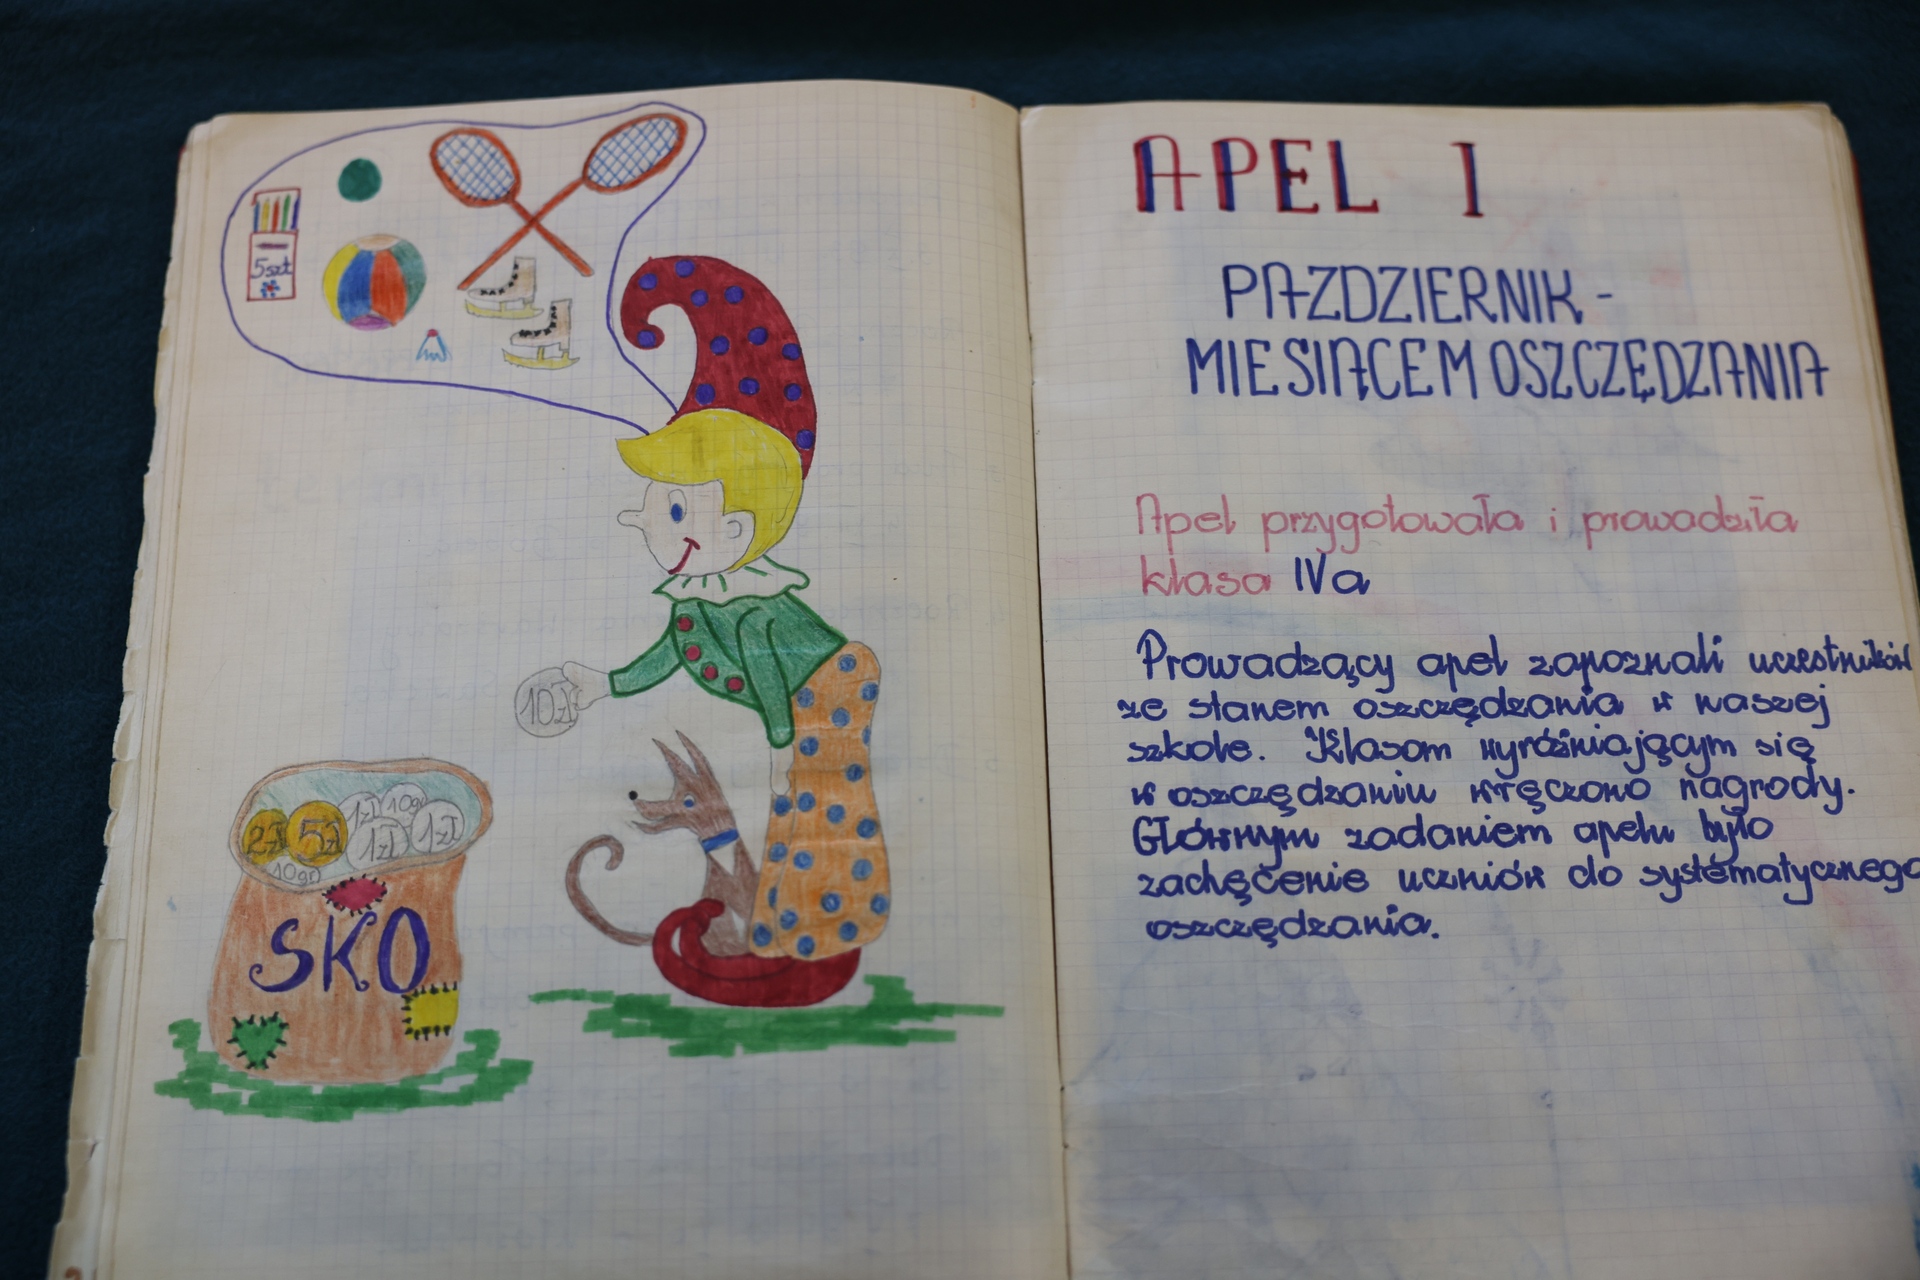 5szt
10zł
2zł 5zł 1zł 10gr
1zł 1zł
10gr
SKO
APEL I
PAZDZIERNIK -
MIESIĄCEM OSZCZĘDZANIA
Apel przygotowała i prowadziła
klasa IVa
Prowadzący apel zapoznali uczestników
ze stanem oszczędzania w naszej
szkole. Klasom wyróżniającym się
w oszczędzaniu wręczono nagrody.
Głównym zadaniem apelu było
zachęcenie uczniów do systematycznego
oszczędzania.